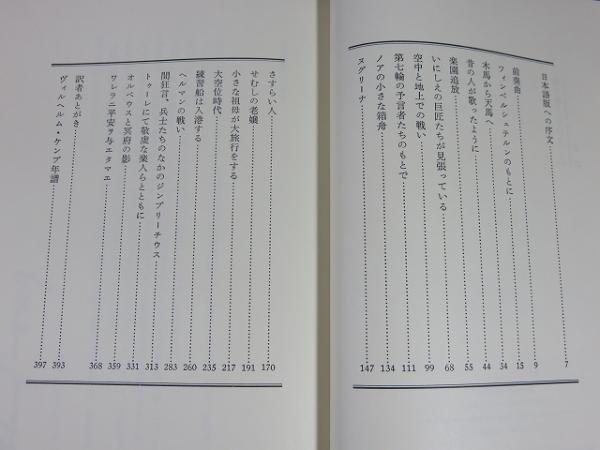 日本語版への序文 7
前奏曲 9
フィンベルシュテルンのもとに 15
木馬から天馬へ 34
昔の人が歌ったように 44
楽園追放 55
いにしえの巨匠たちが見張っている 68
空中と地上での戦い 99
第七輪の予言者たちのもとで 111
ノアの小さな箱舟 134
ヌグリーナ 147
さすらい人 170
せむしの老嬢 191
小さな祖母が大旅行をする 217
大空位時代 235
練習船は入港する 260
ヘルマンの戦い 283
間狂言、兵士たちのなかのジンプリーチウス 313
トゥーレにて敬虔な楽人らとともに 331
オルペウスと冥府の影 359
ワレラニ平安ヲ与エタマエ 368
訳者あとがき 393
ヴィルヘルム・ケンプ年譜 397